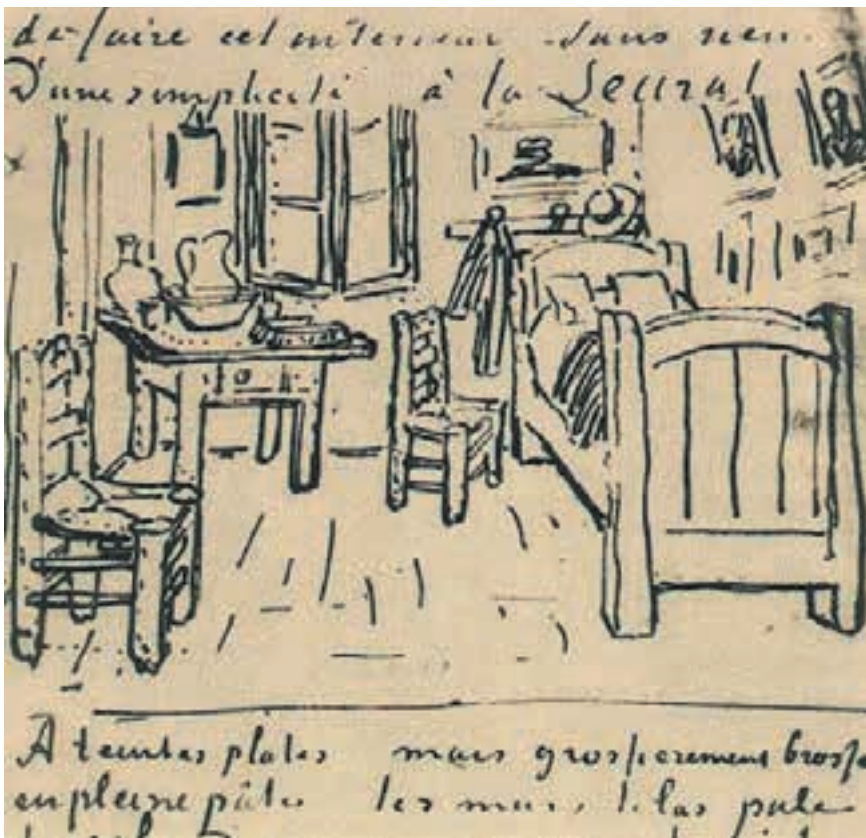 de faire cet interieur sans rien.
D'une simplicité à la Seurat
A teintes plates mais grossierement brossé
en pleine pâte les murs lilas pale